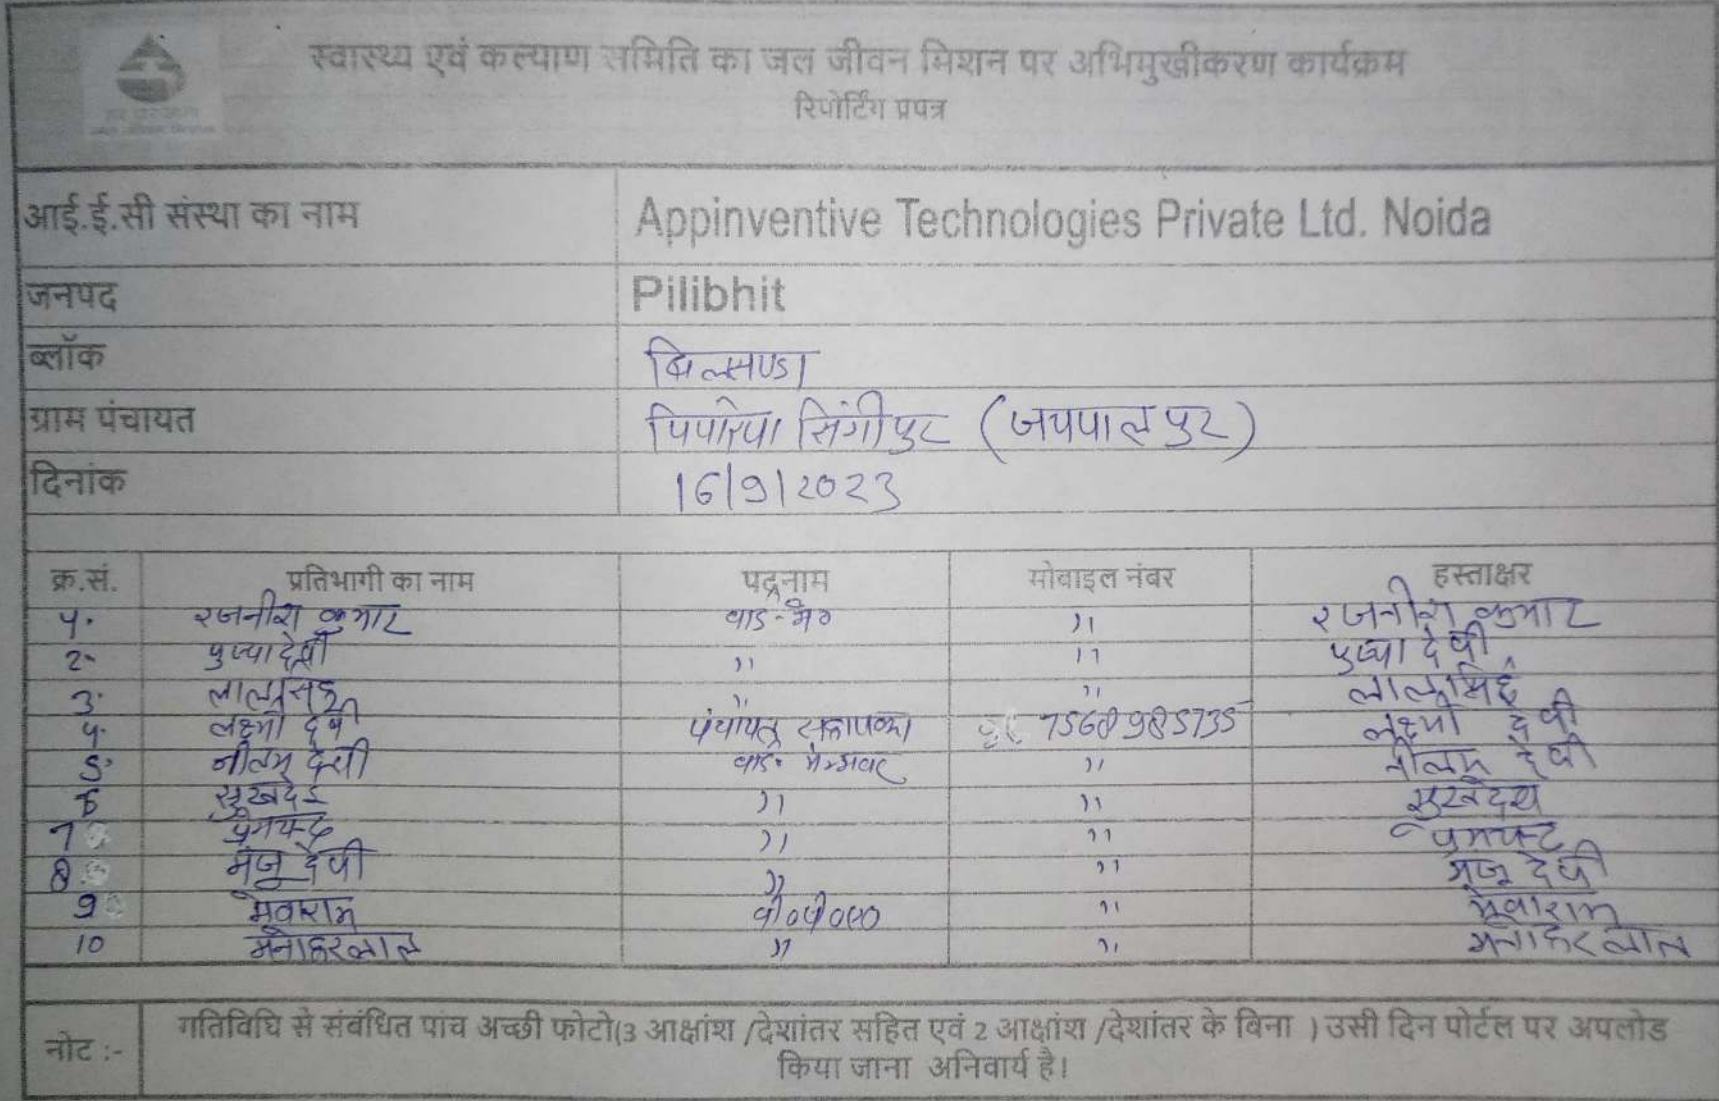 स्वास्थ्य एवं कल्याण समिति का जल जीवन मिशन पर अभिमुखीकरण कार्यक्रम
रिपोर्टिंग प्रपत्र
आई.ई.सी संस्था का नाम Appinventive Technologies Private Ltd. Noida
जनपद Pilibhit
ब्लॉक बिलसण्डा
ग्राम पंचायत सिंगीपुर (जयपालपुर)
दिनांक 16/9/2023
क्र.सं. प्रतिभागी का नाम पद्नाम मोबाइल नंबर हस्ताक्षर
रजनीश कुमार वार्ड-मे० ,, रजनीश कुमार
2- पुष्पा देवी ,, ,, पुष्पा देवी
3. ,, ,,
4. लक्ष्मी देवी पंचायत लक्ष्मी देवी
5. नीलम देवी वार्ड ,, नीलम देवी
6 ,, ,,
7 ,, ,,
8 मंजू देवी ,, ,, मंजू देवी
9 मेवाराम ,, मेवाराम
10 मनोहरलाल ,, ,, मनोहरलाल
नोट :- गतिविधि से संबंधित पांच अच्छी फोटो(3 आक्षांश /देशांतर सहित एवं 2 आक्षांश /देशांतर के बिना ) उसी दिन पोर्टल पर अपलोड
किया जाना अनिवार्य है।